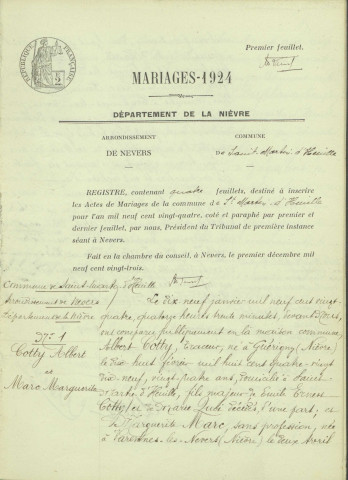 RÉPUBLIQUE FRANÇAISE
Premier feuillet.
MARIAGES-1924
DÉPARTEMENT DE LA NIÈVRE
ARRONDISSEMENT
DE NEVERS
COMMUNE
De Saint Martin d'Heuille
REGISTRE, contenant quatre feuillets, destiné à inscrire
les Actes de Mariages de la commune de St Martin d'Heuille
pour l'an mil neuf cent vingt-quatre, coté et paraphé par premier et
dernier feuillet, par nous, Président du Tribunal de première instance
séant à Nevers.
Fait en la chambre du conseil, à Nevers, le premier décembre mil
neuf cent vingt-trois.
Commune de Saint-Martin d'Heuille
Arrondissement de Nevers
Département de la Nièvre
N° 1
Cotty Albert
et
Marc Marguerite
Le dix neuf janvier mil neuf cent vingt-
quatre, quatorze heures trente minutes, devant Nous,
ont comparu publiquement en la maison commune,
Albert Cotty, traceur, né à Guérigny (Nièvre)
le dix huit février mil huit cent quatre-vingt
dix neuf, vingt-quatre ans, domicilié à Saint
Martin d'Heuille, fils majeur de Emile Ernest
Cotty et de Marie décédés, d'une part; et
Marguerite Marc, sans profession, née
à Varennes-les-Nevers (Nièvre) le deux Avril